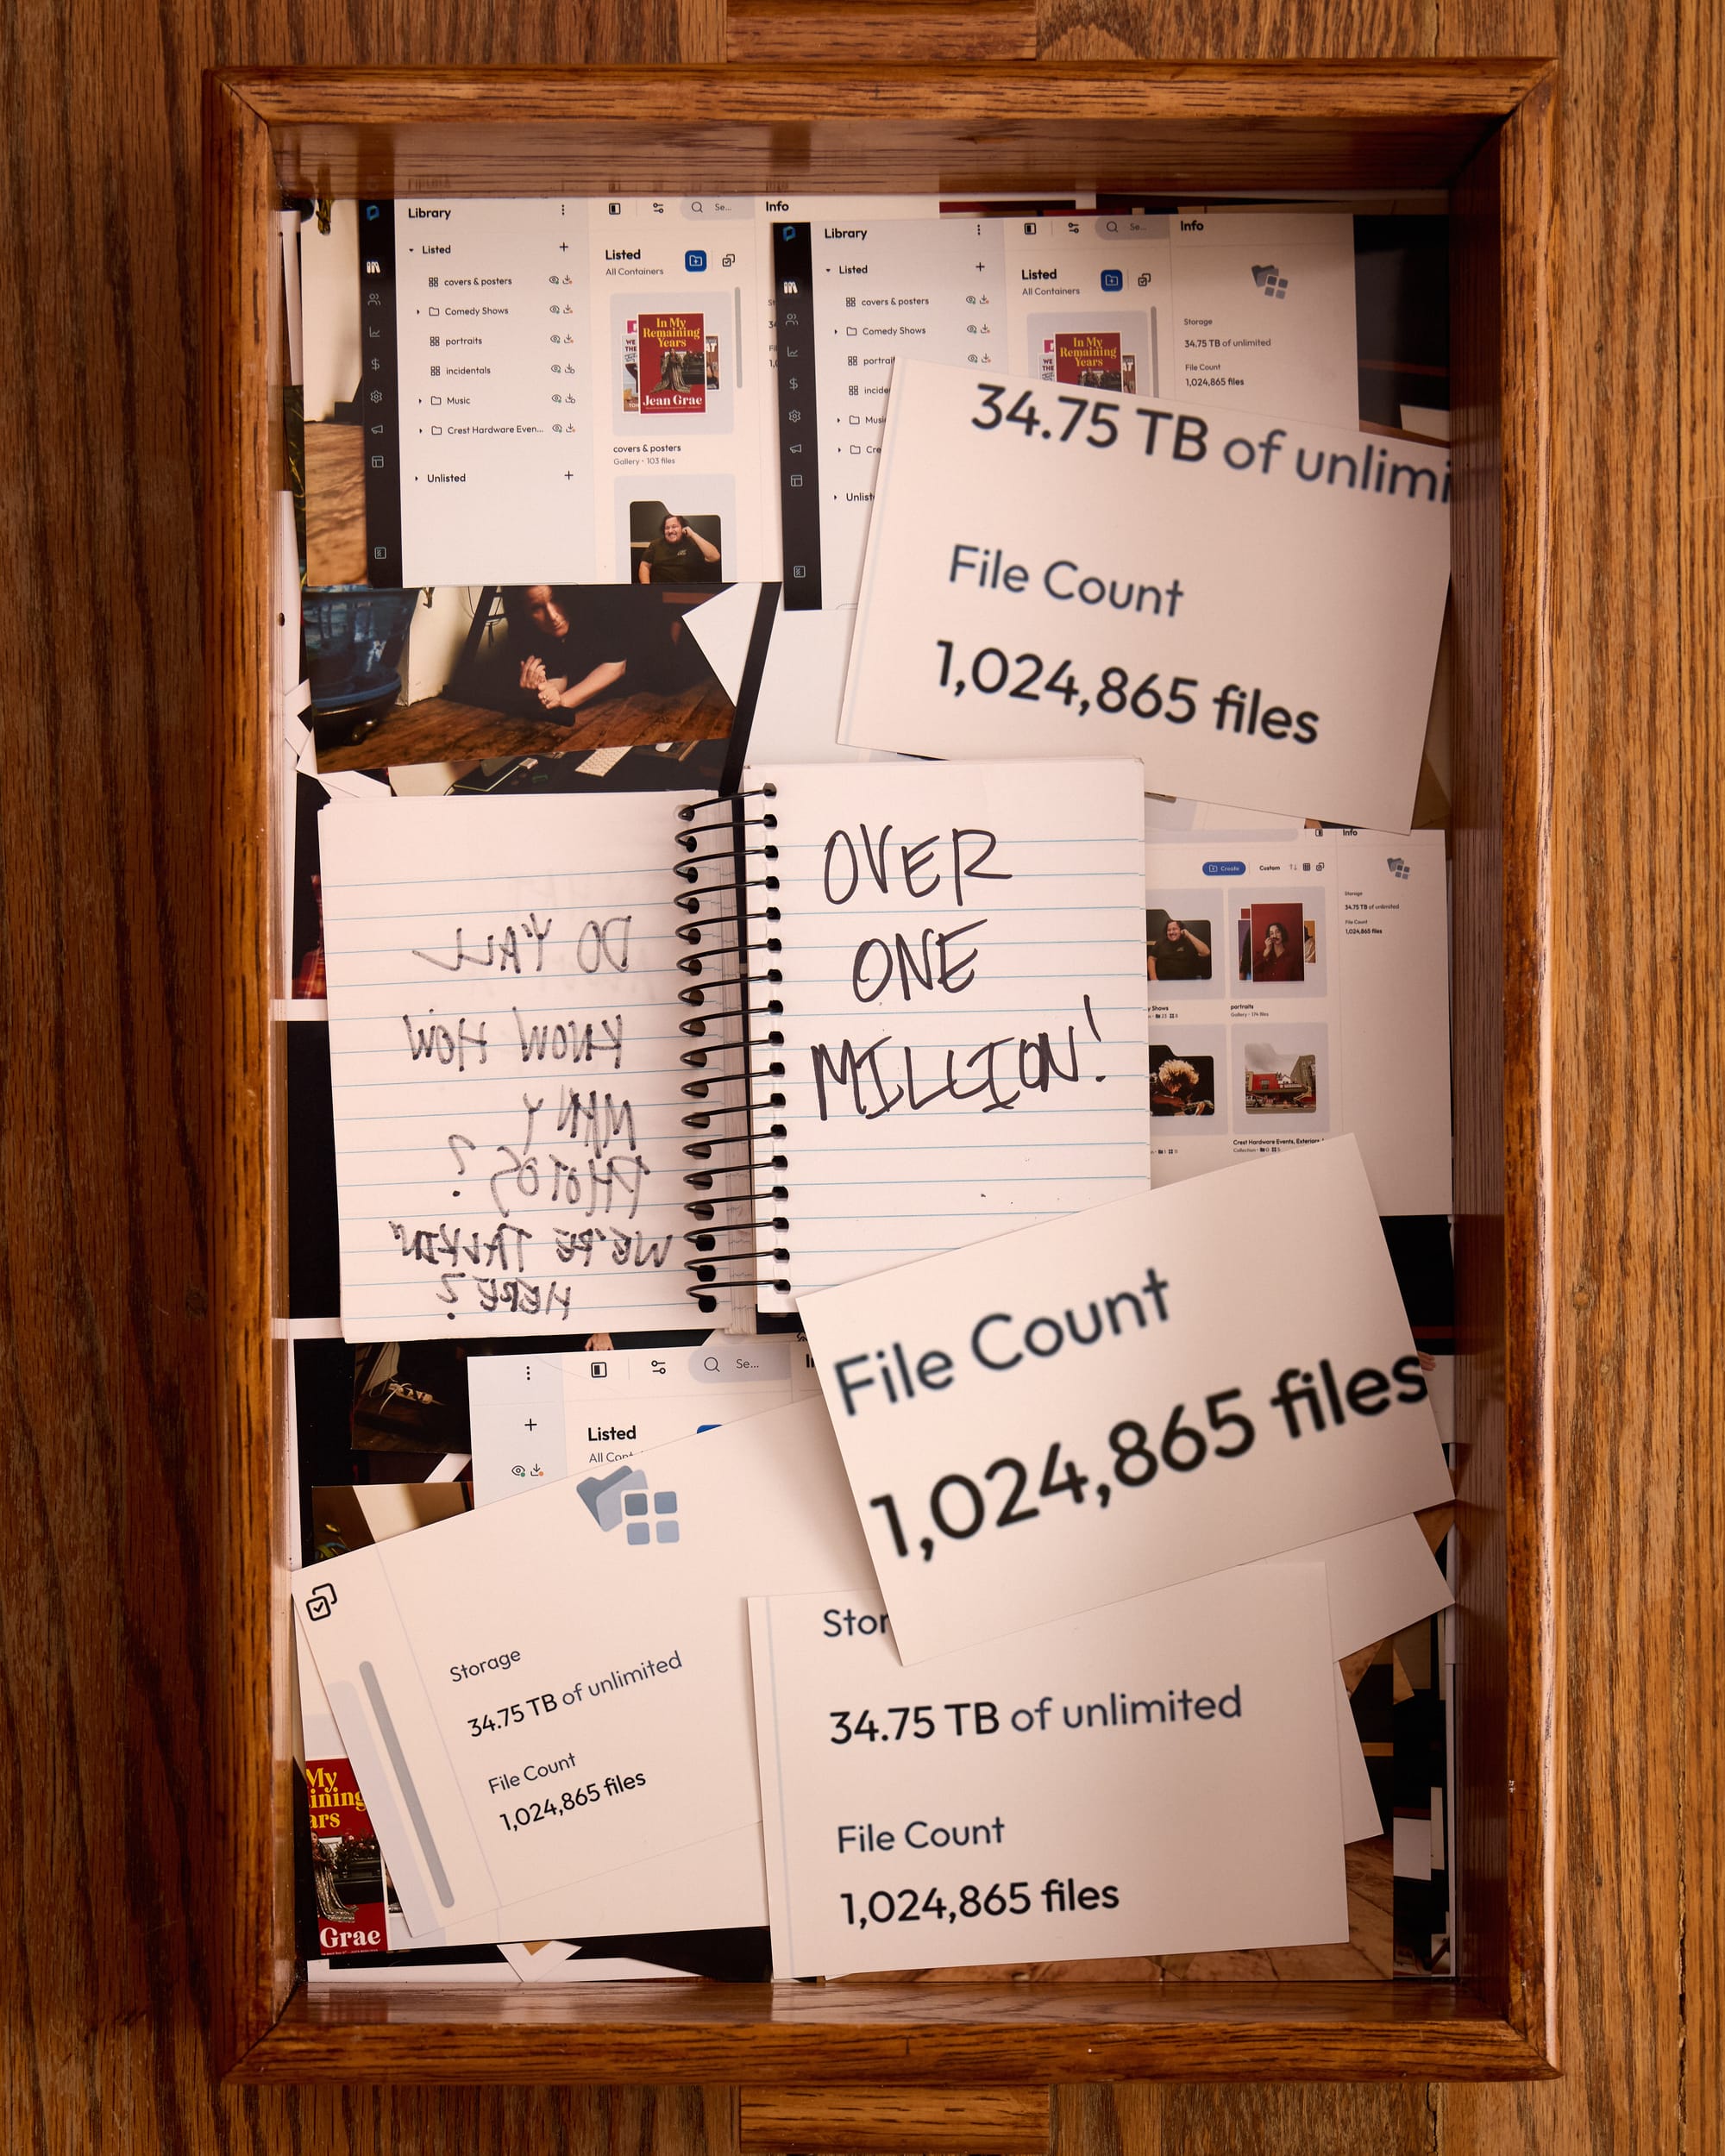 Library
Listed
covers & posters
Comedy Shows
portraits
incidentals
Music
Crest Hardware Even...
Unlisted
Se...
Listed
All Containers
In My
Remaining
Years
Jean Grae
covers & posters
Gallery • 103 files
Info
Library
Listed
covers & posters
Comedy Shows
Se...
Listed
All Containers
In My
Remaining
Years
Info
Storage
34.75 TB of unlimited
File Count
1,024,865 files
34.75 TB of unlimi
File Count
1,024,865 files
DO Y'ALL
KNOW HOW
MANY
PHOTOS?
WE'RE TALKIN'
HERE?
OVER
ONE
MILLION!
Info
Create
Custom
Storage
34.75 TB of unlimited
File Count
1,024,865 files
Shows
portraits
Gallery • 174 files
Crest Hardware Events, Exteriors
Collection
Se...
Listed
File Count
1,024,865 files
Storage
34.75 TB of unlimited
File Count
1,024,865 files
Stor
34.75 TB of unlimited
File Count
1,024,865 files
My
ining
ars
Grae